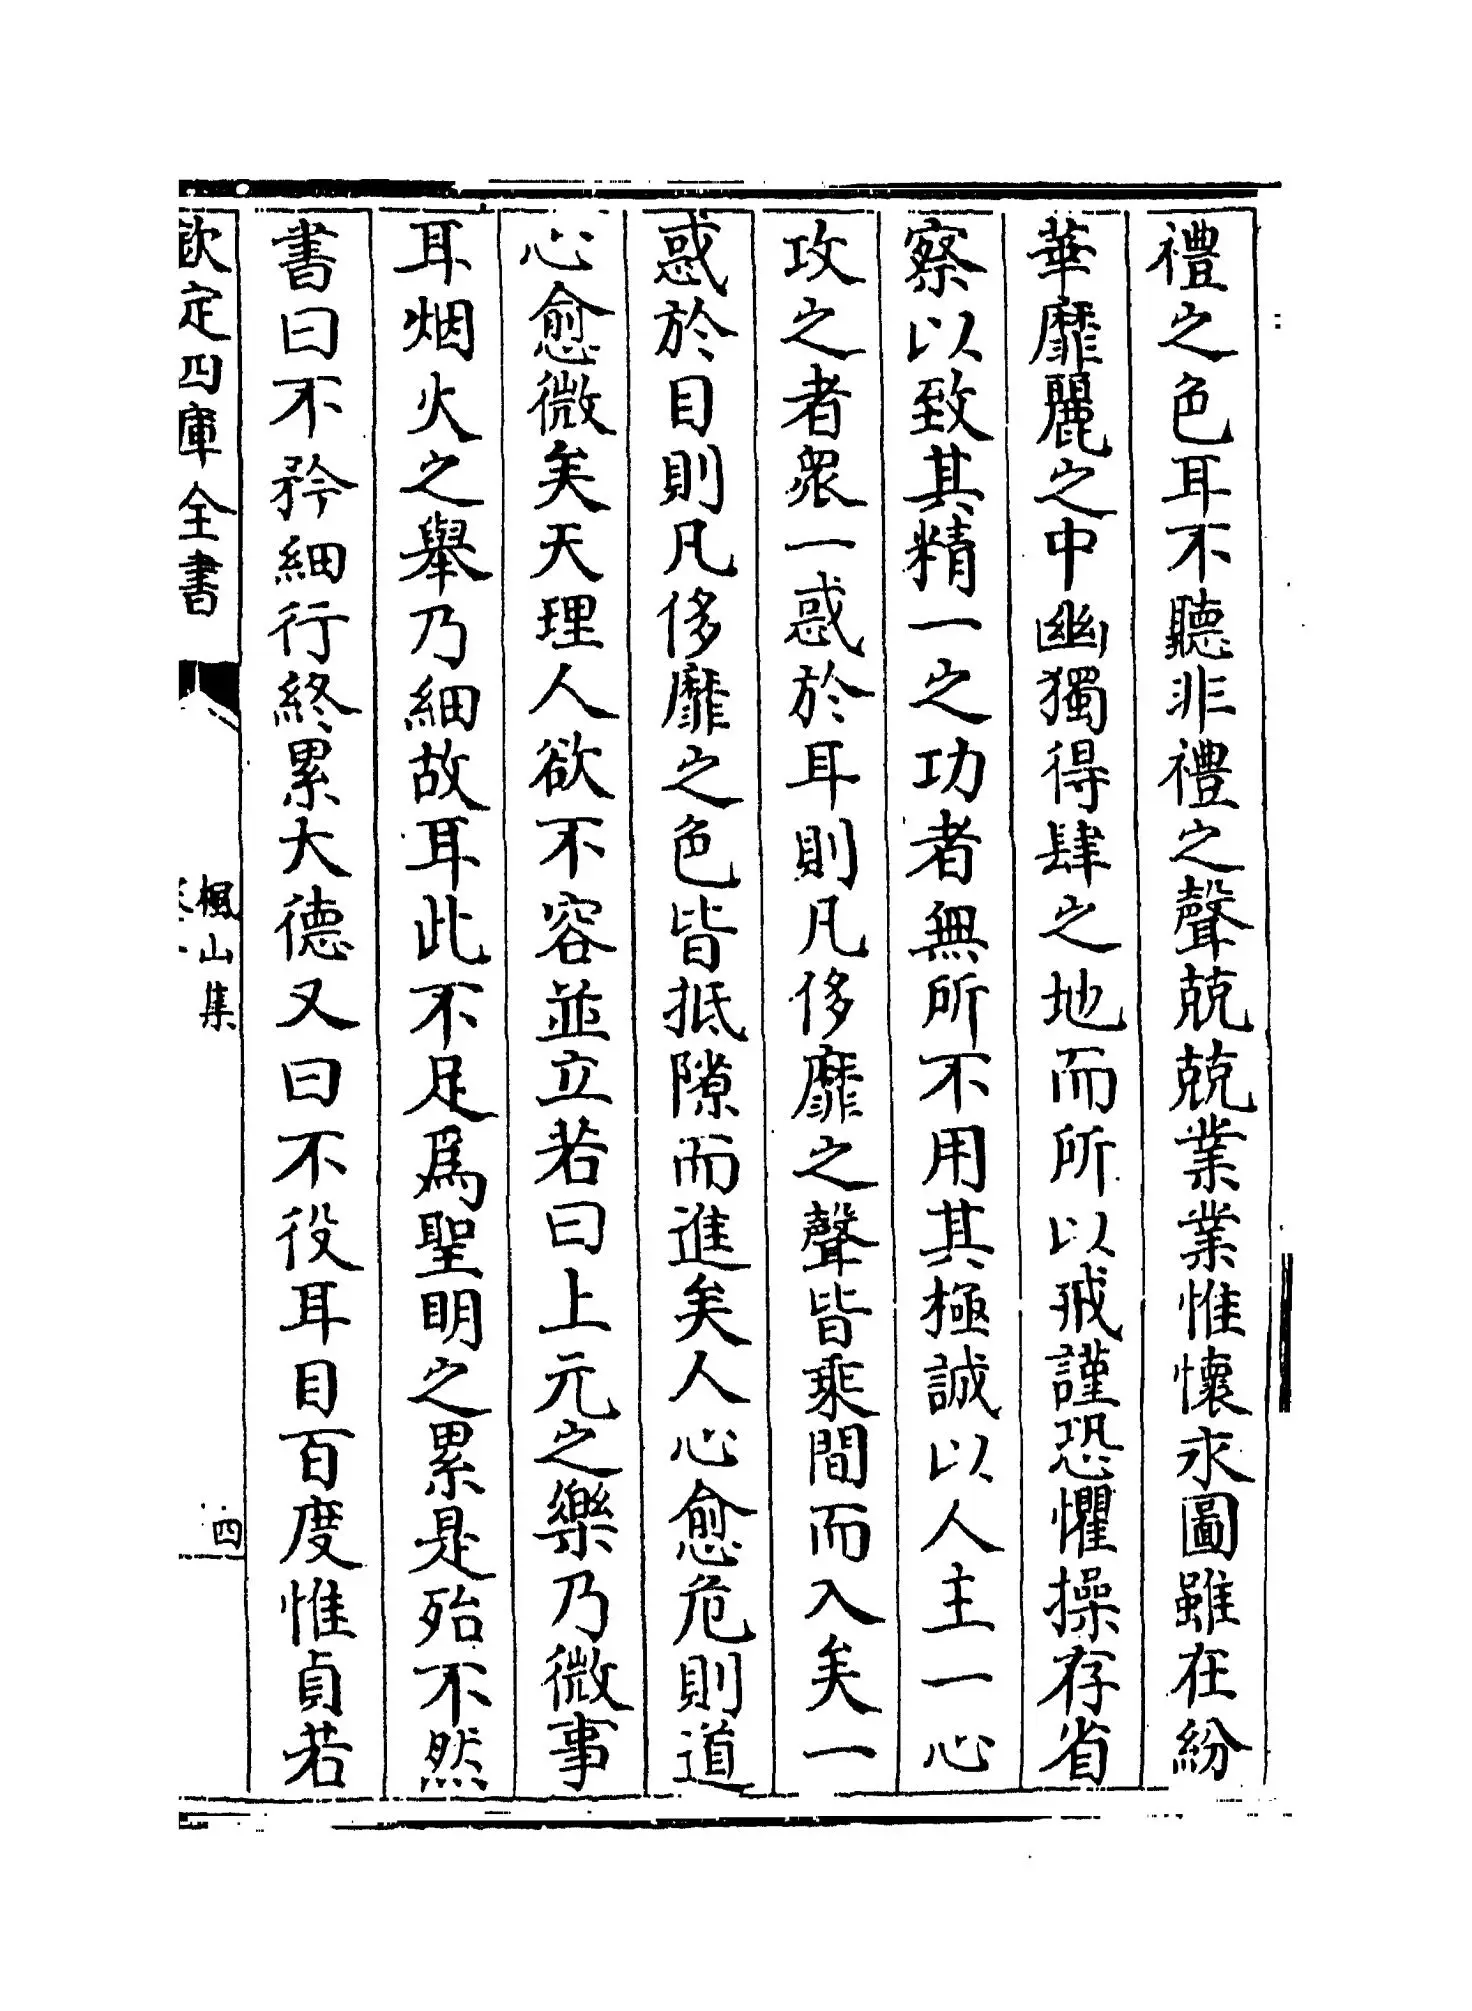 禮之色耳不聽非禮之聲兢兢業業惟懷永圖雖在紛
華靡麗之中幽獨得肆之地而所以戒謹恐懼操存省
察以致其精一之功者無所不用其極誠以人主一心
攻之者衆一惑於耳則凡侈靡之聲皆乘間而入矣一
惑於目則凡侈靡之色皆抵隙而進矣人心愈危則道
心愈微矣天理人欲不容並立若曰上元之樂乃微事
耳烟火之舉乃細故耳此不足爲聖明之累是殆不然
書曰不矜細行終累大德又曰不役耳目百度惟貞若
欽定四庫全書
楓山集
四